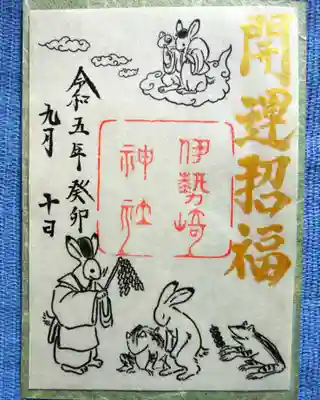 開運招福
伊勢崎
神社
令和五年 癸卯
九月 十日